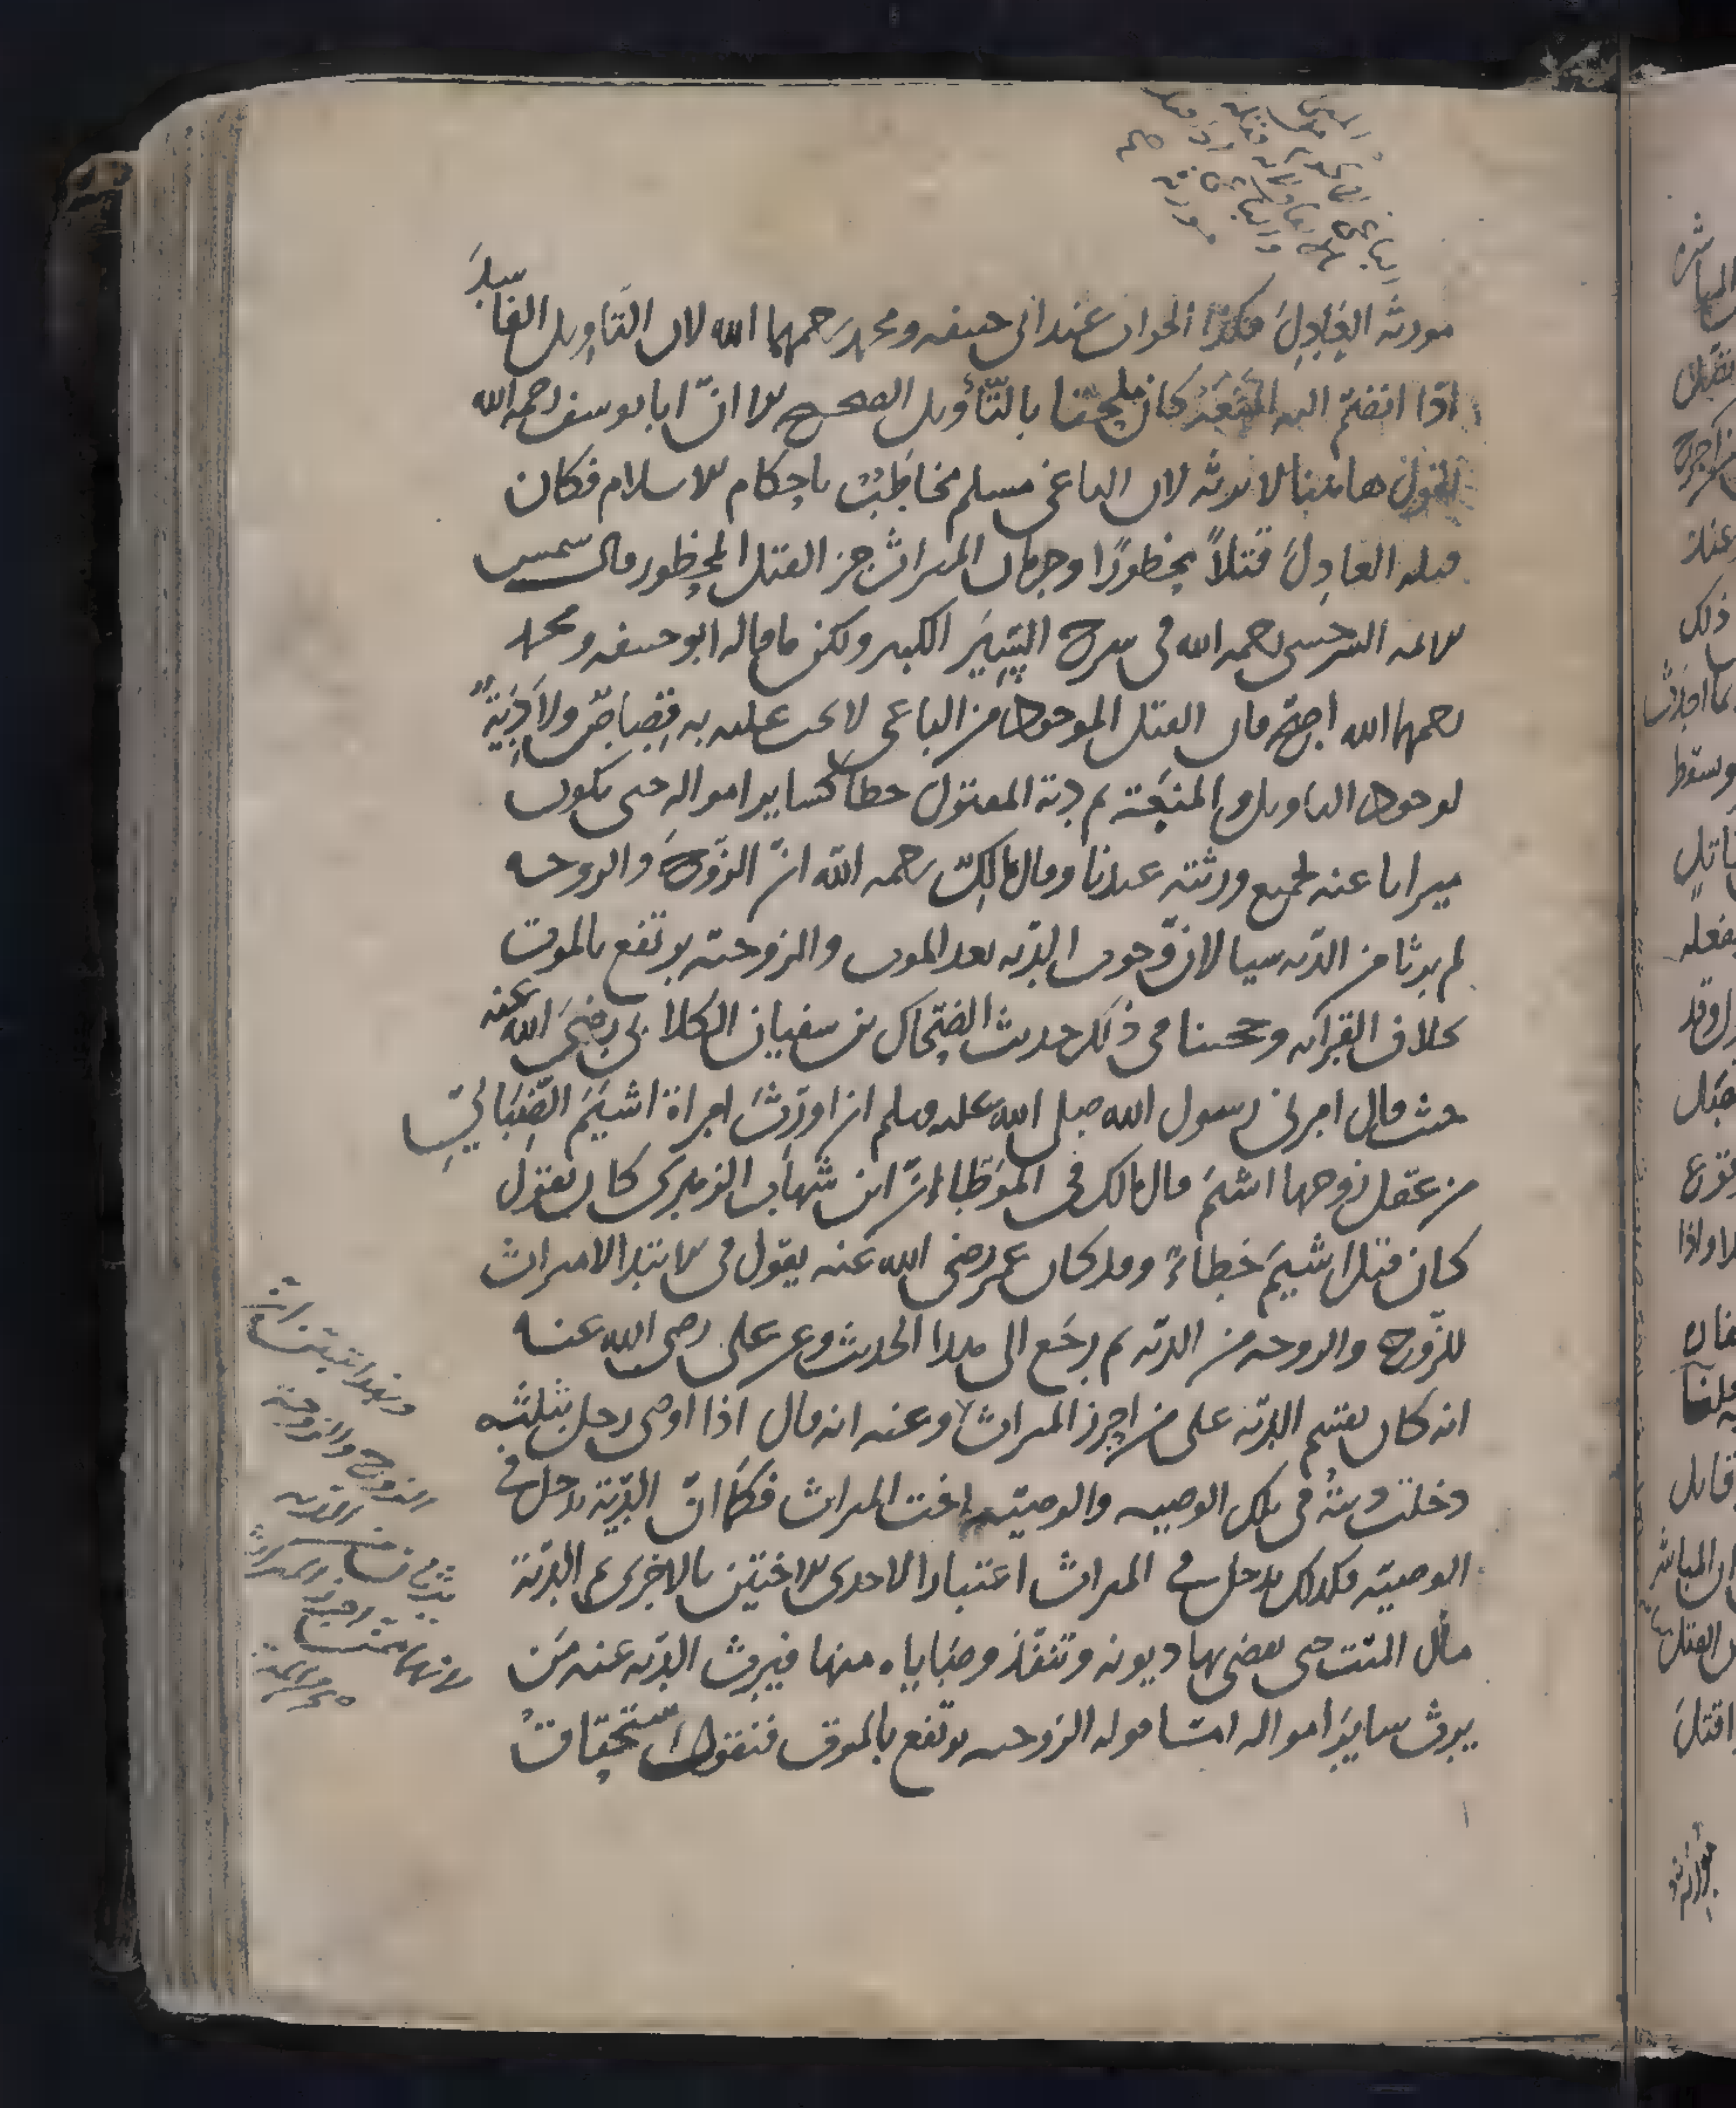 مورثه العادل هكذا الجواب عند ابي حنيفه ومحمد رحمهما الله لان التاويل الفاسد
اذا انضم اليه المنعة كان ملحقا بالتأويل الصحيح الا انّ ابا يوسف رحمه الله
يقول هاهنا لا يرثه لان الباغي مسلم مخاطب باحكام الاسلام فكان
قتله العادل قتلاً محظورًا وحرمان الميراث جزاء القتل المحظور قال شمس
الائمه السرخسي رحمه الله في شرح السِّيَر الكبير ولكن ما قاله ابو حنيفه ومحمد
رحمهما الله اصح فان القتل الموجود من الباغي لا يجب عليه به قصاص ولا دية
لوجود التاويل والمنعة ثم دية المقتول خطأ كساير امواله حتى يكون
ميراثا عنه لجميع ورثته عندنا وقال مالك رحمه الله انّ الزوج والزوجه
لم يرثا من الديه شيا لان وجوب الديه بعد الموت والزوجية يرتفع بالموت
بخلاف القرابه وحجتنا في ذلك حديث الضحاك بن سفيان الكلابي رضي الله عنه
حيث قال امرني رسول الله صلى الله عليه وسلم ان اورث امراة اشيم الضبابي
من عقل زوجها اشيم قال مالك في الموطاء انّ ابن شهاب الزهري كان يقول
كان قتل اشيم خطاءً وقد كان عمر رضي الله عنه يقول في الابتدا لا ميراث
للزوج والزوجه من الديّه ثم رجع الى هذا الحديث وعن علي رضي الله عنه
انه كان يقسم الديّه على من احرز الميراث وعنه انه قال اذا اوصى رجل بثلثه
دخلت ديته في تلك الوصيه والوصيّه اخت الميراث فكما انّ الدّية تدخل في
الوصيّه فكذلك تدخل في الميراث اعتبارا لاحدى الاختين بالاخرى ثم الديّة
مال الميّت حتى يقضى بها ديونه وتنفّذ وصاياه منها فيرث الديّه عنه من
يرث ساير امواله امّا قوله الزوجيه يرتفع بالموت فنقول استحقاق
وبهذا تبيّن ان
الزوج والزوجة
يرثان من الديّه
لانهما ممّن احرز الميراث